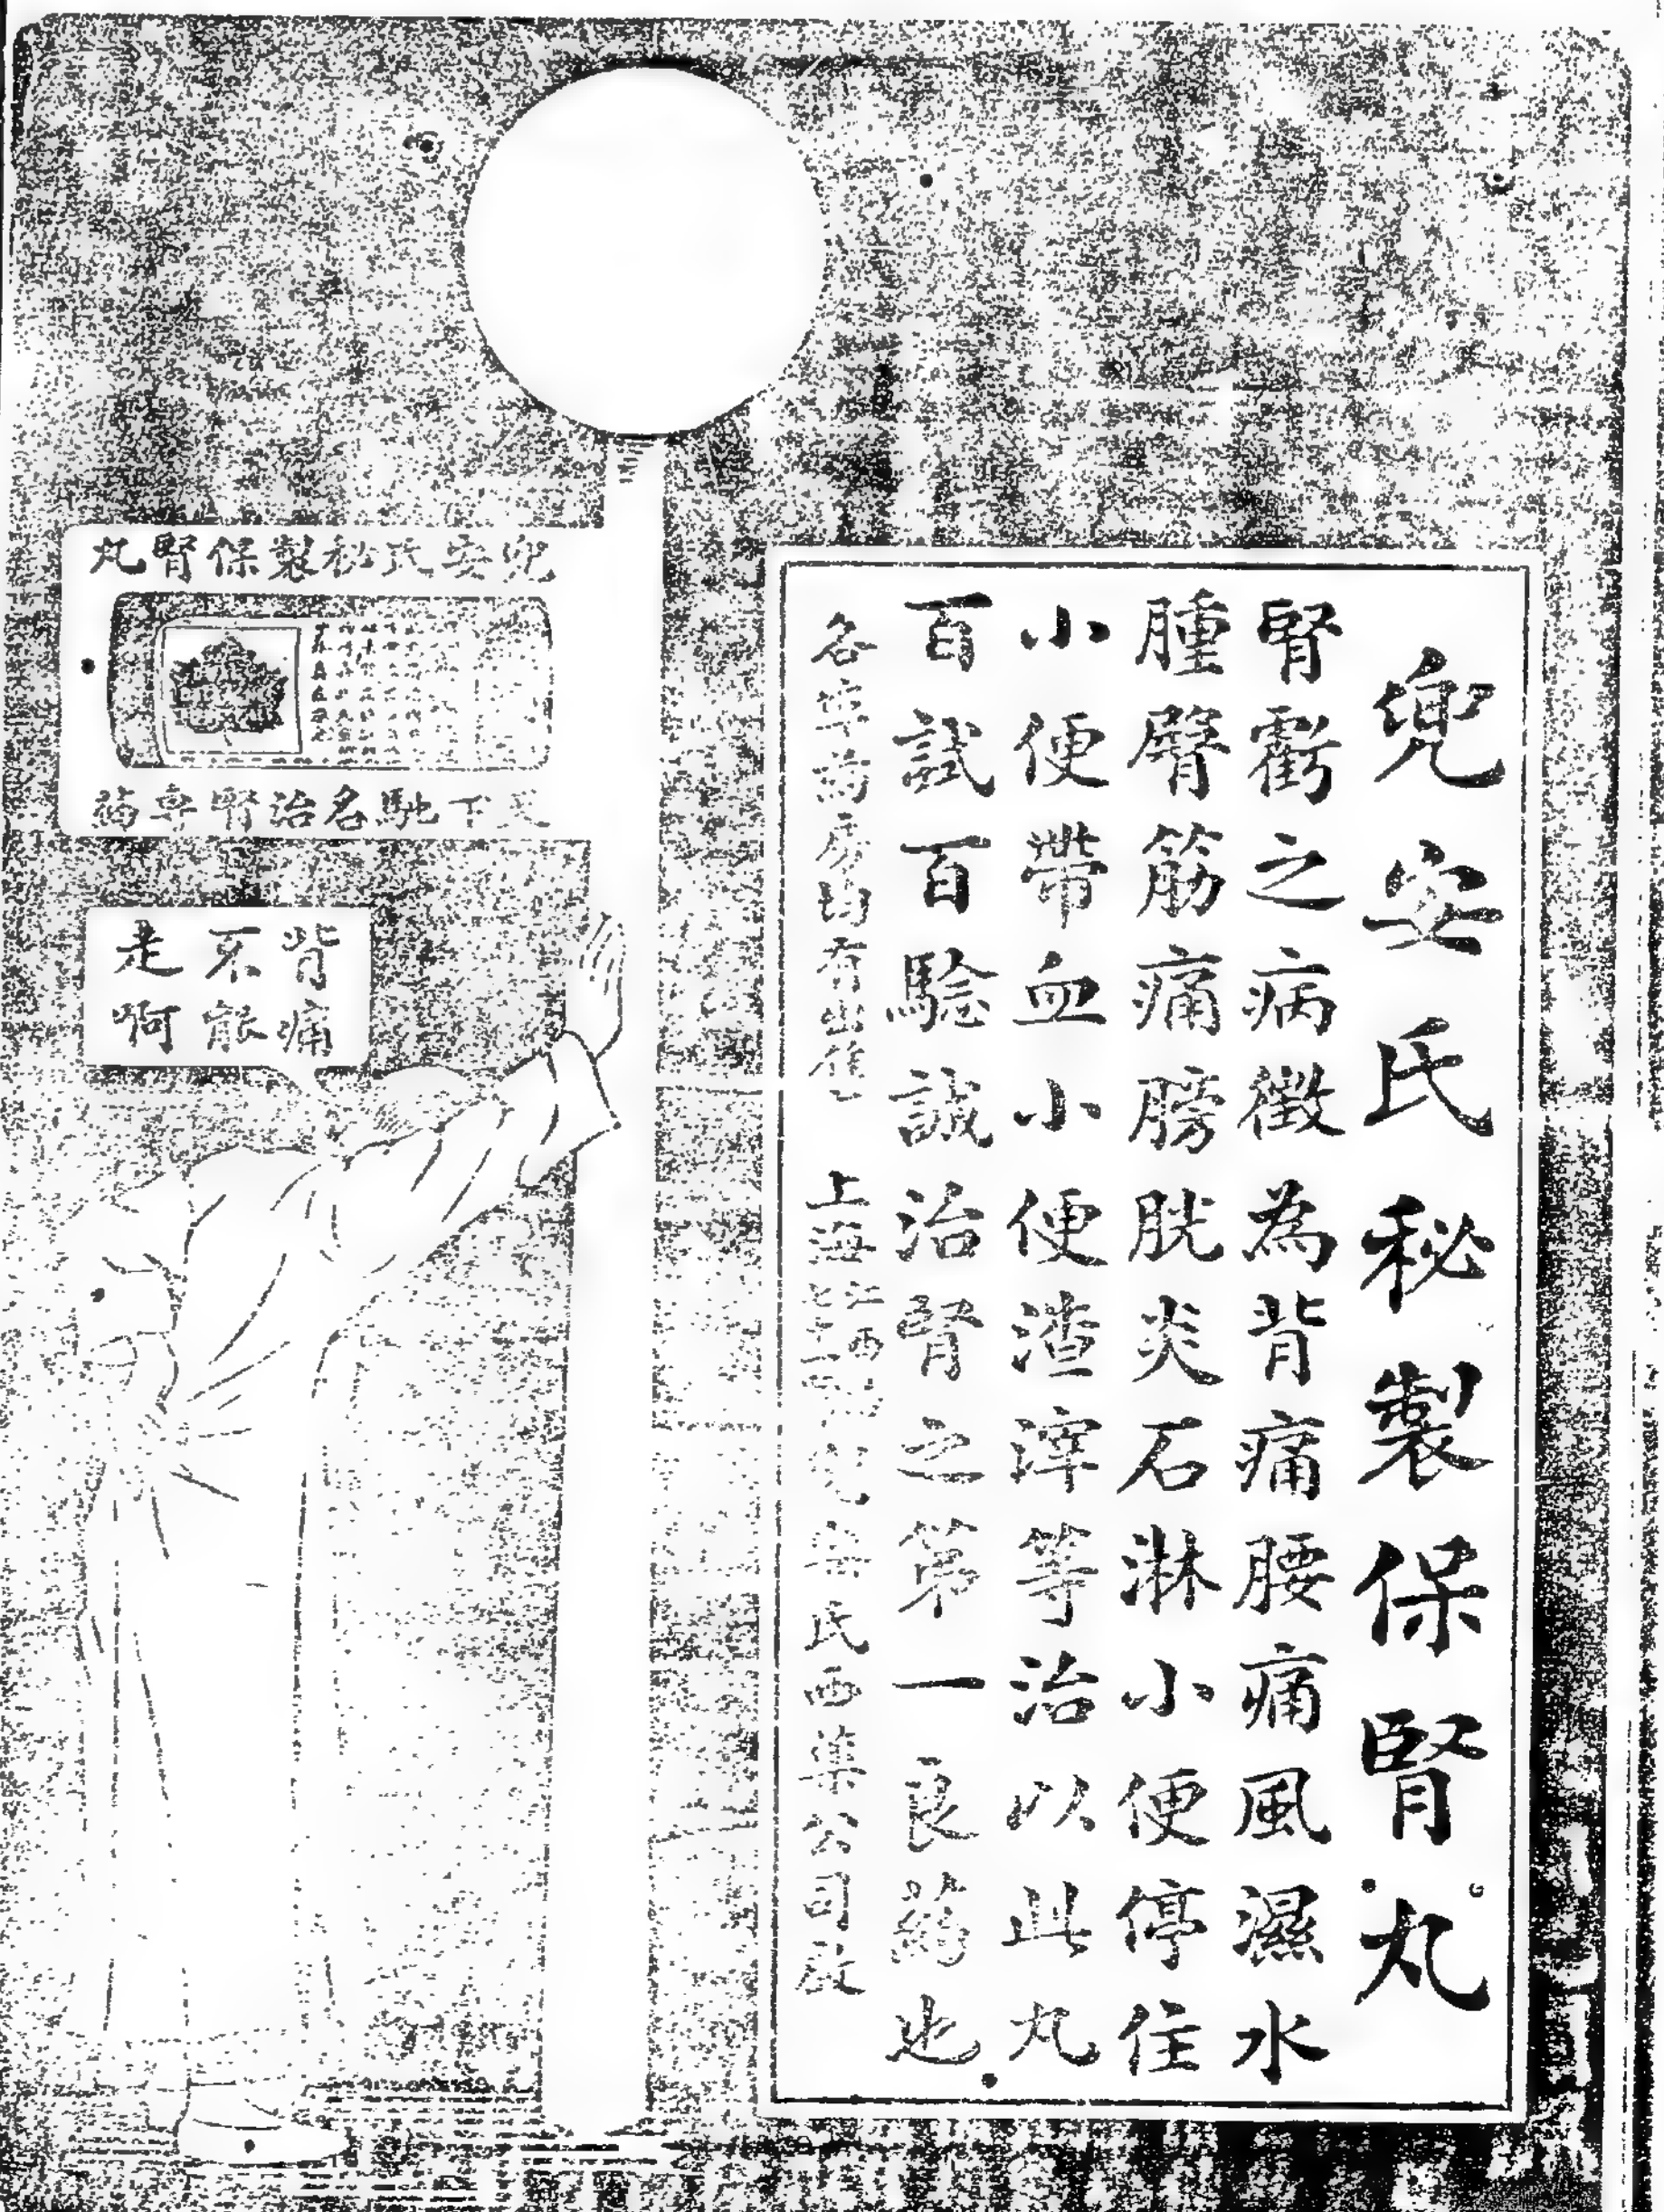 兜安氏秘製保腎丸
腎虧之病徵為背痛腰痛風濕水
腫臂筋痛膀胱炎石淋小便停住
小便帶血小便渣滓等治以此丸
百試百驗誠治腎之第一良葯也
各埠葯房均有出售 上海江西路兜安氏西藥公司啟
兜安氏秘製保腎丸
天下馳名治腎專葯
背痛
不能
走啊